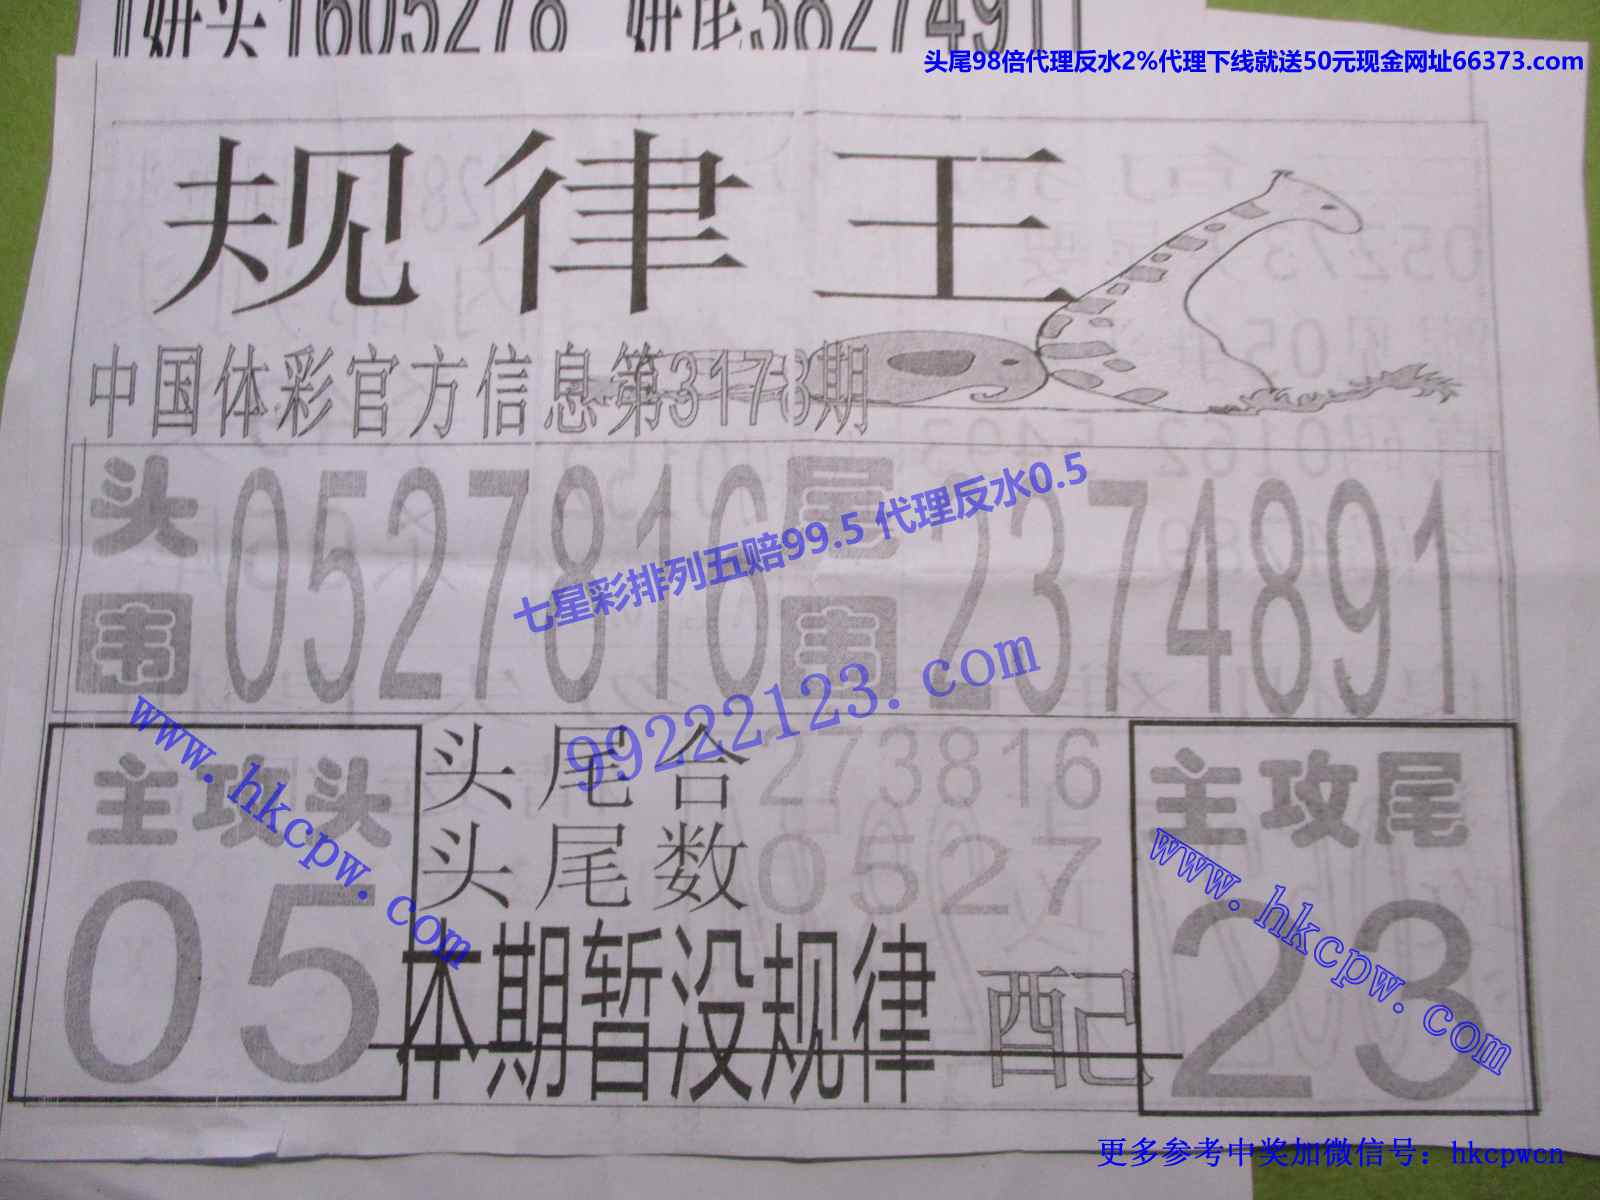 拼头1605278 拼尾38274911
头尾98倍代理反水2%代理下线就送50元现金网址66373.com
规律王
中国体彩官方信息第3178期
头围 0527816 尾围 2374891
七星彩排列五赔99.5 代理反水0.5
99222123.com
主攻头
05
www.hkcpw.com
头尾合 273816
头尾数 0527
本期暂没规律 配
主攻尾
23
www.hkcpw.com
更多参考中奖加微信号：hkcpwcn